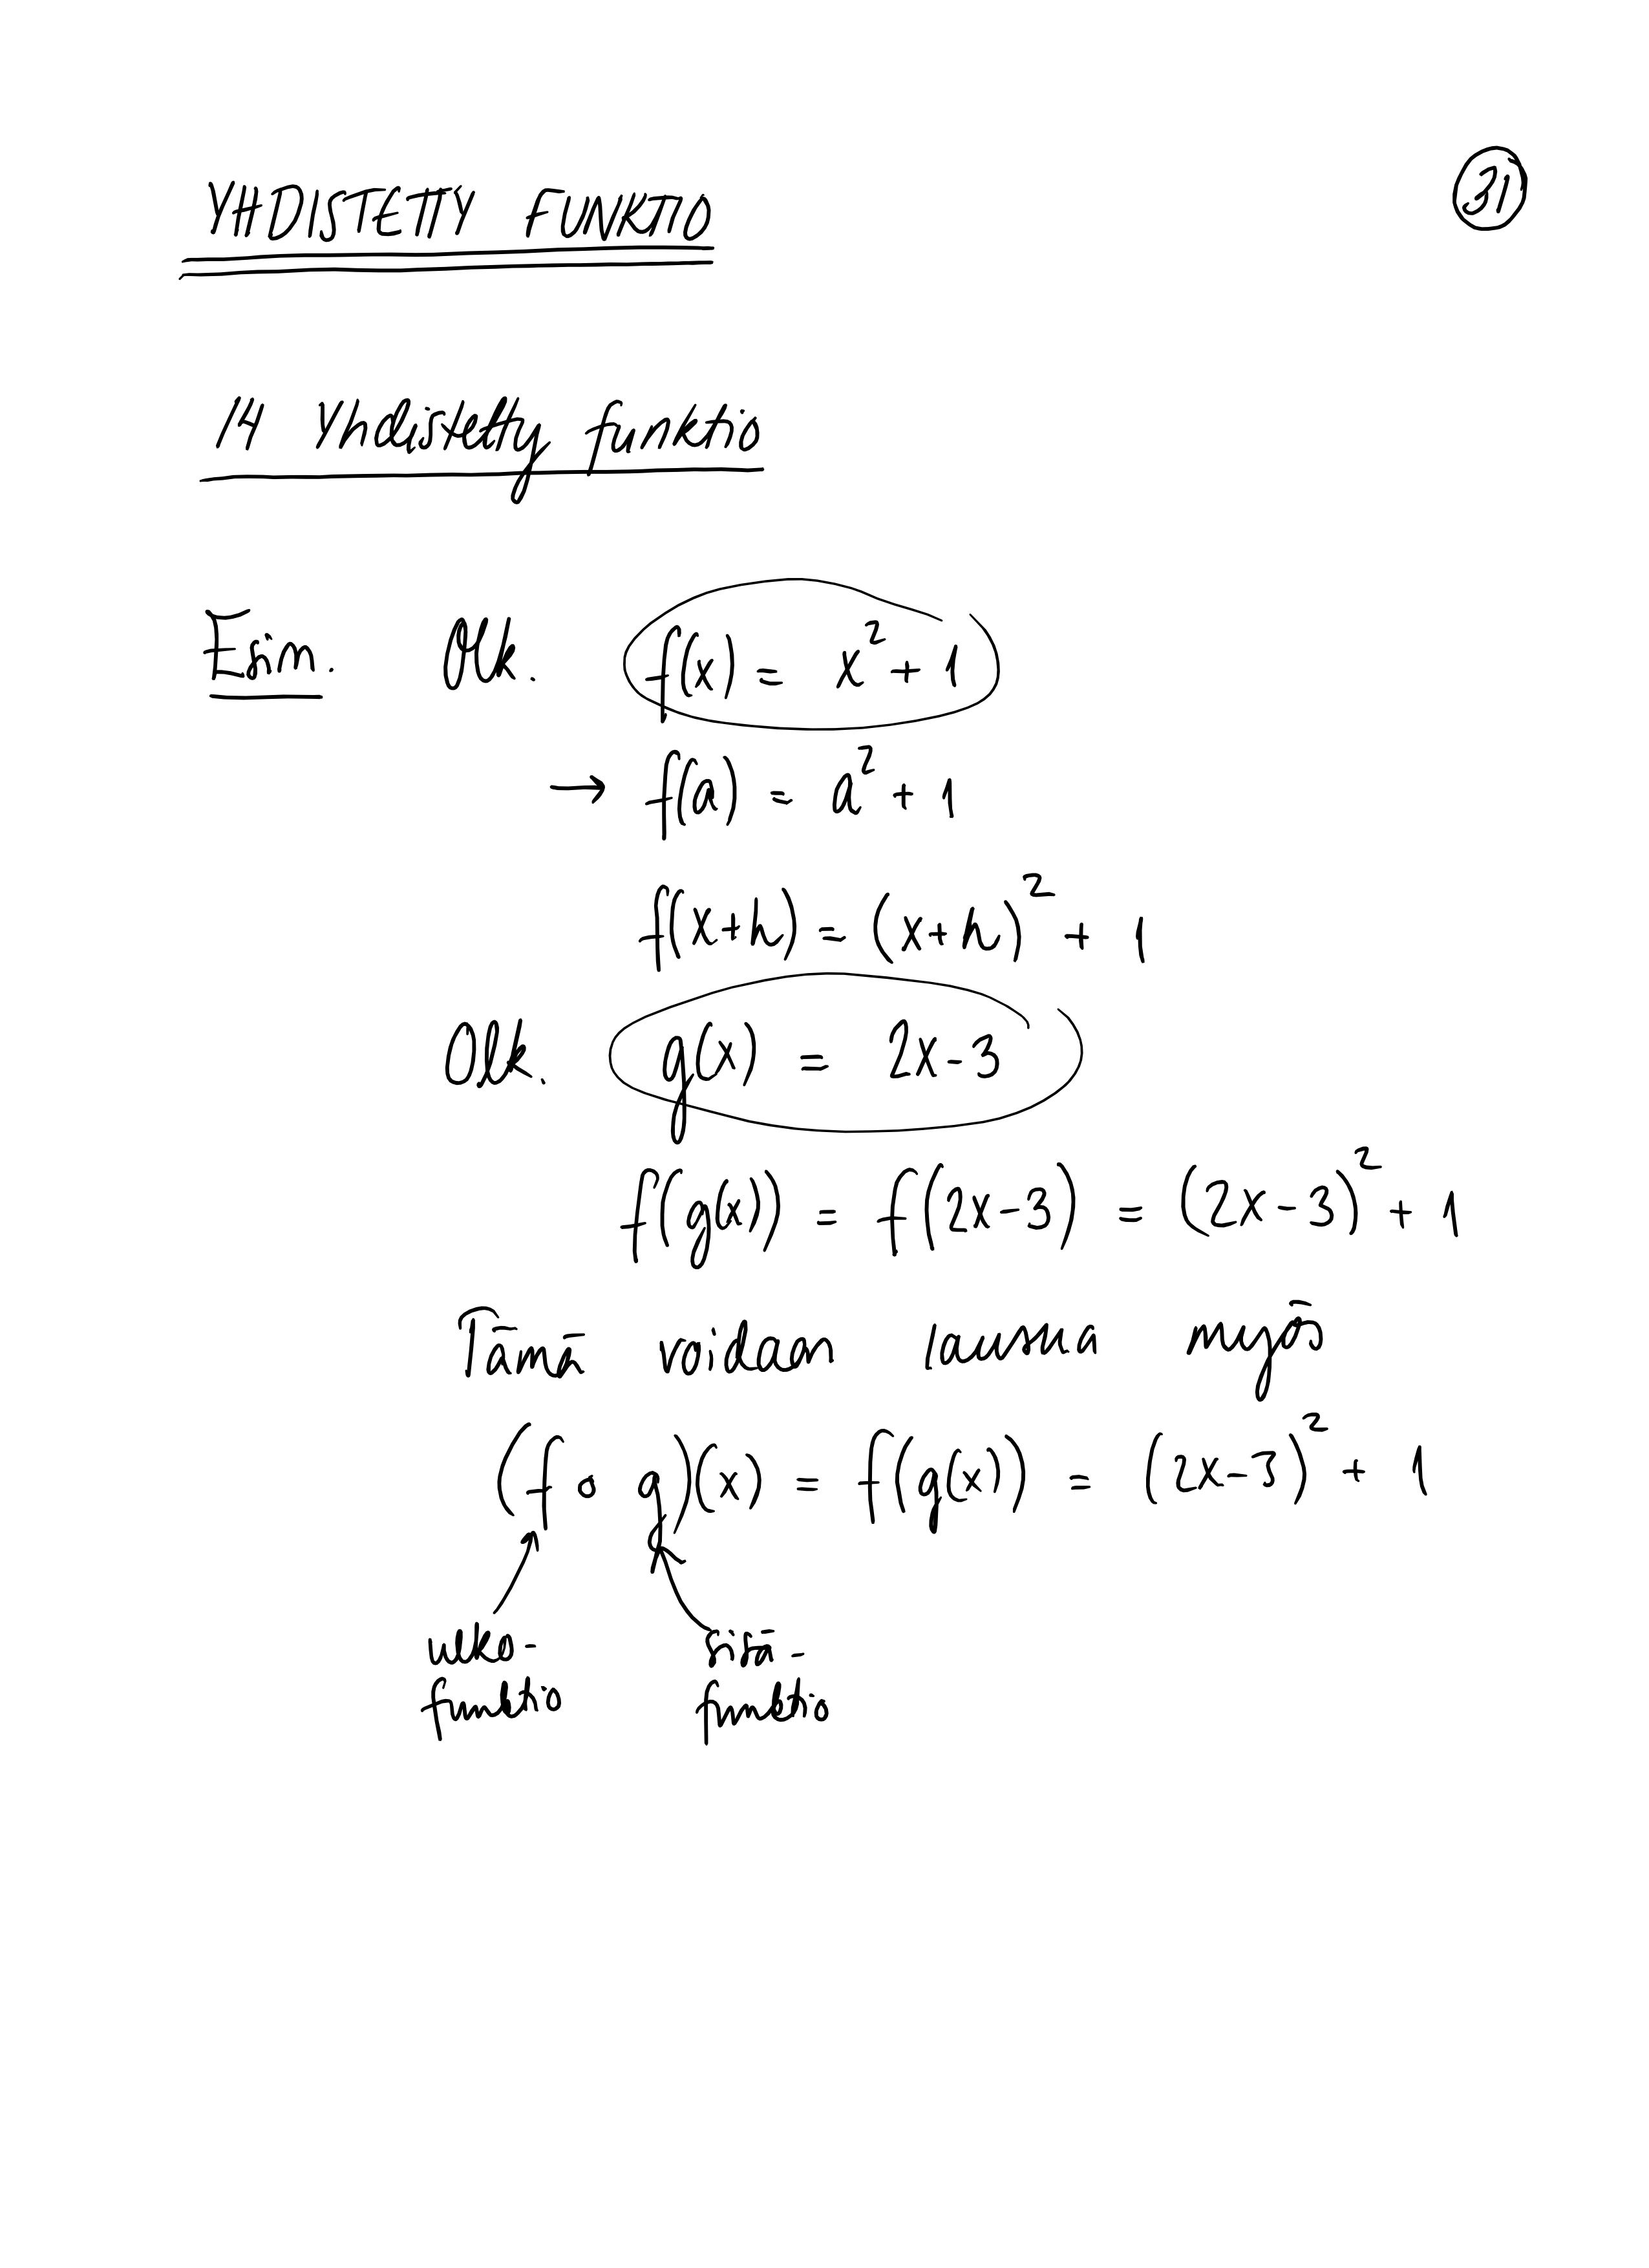 YHDISTETTY FUNKTIO
31
14 Yhdistetty funktio
Esim. Olk. f(x) = x² + 1
→ f(a) = a² + 1
f(x+h) = (x+h)² + 1
Olk. g(x) = 2x-3
f(g(x)) = f(2x-3) = (2x-3)² + 1
Tämä voidaan lausua myös
(f ∘ g)(x) = f(g(x)) = (2x-3)² + 1
ulko- sisä-
funktio funktio